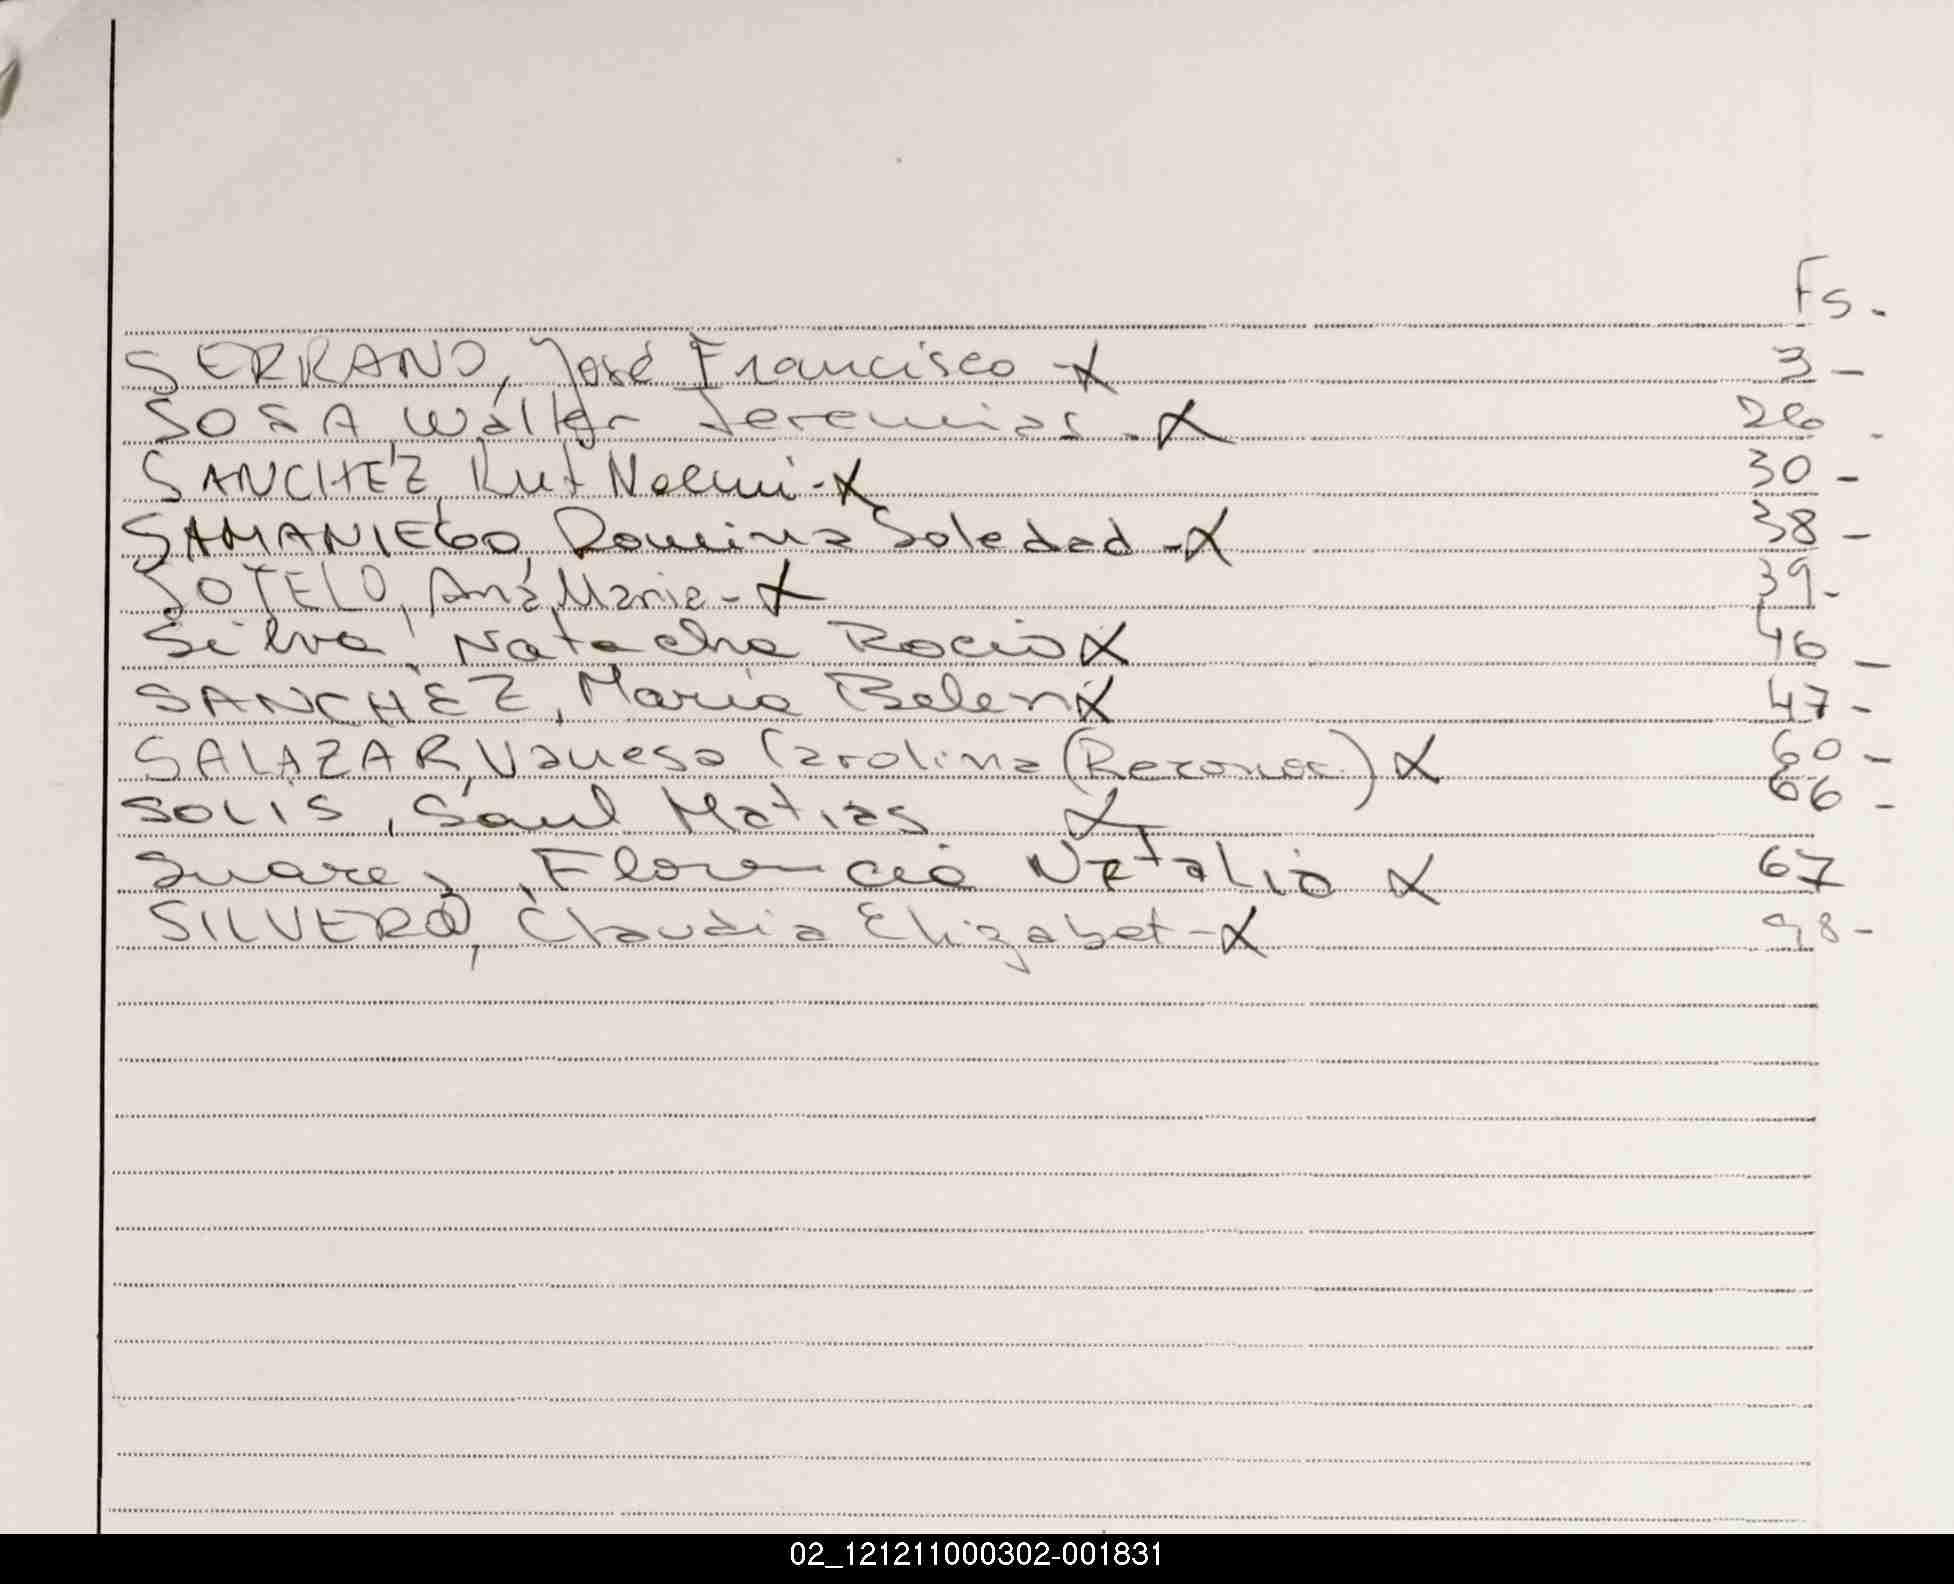 Fs.
SERRANO, José Francisco - X 3 -
SOSA, Walter Jeremias - X 26 -
SANCHEZ, Rut Noemi - X 30 -
SAMANIEGO, Romina Soledad - X 38 -
SOTELO, Ana Maria - X 39 -
Silva, Natacha Rocio X 46 -
SANCHEZ, Maria Belen X 47 -
SALAZAR, Vanesa Carolina (Reconoc.) X 60 -
SOLIS, Saul Matias X 66 -
Suarez, Florencia Natalia X 67
SILVERO, Claudia Elizabet - X 98 -
02_121211000302-001831